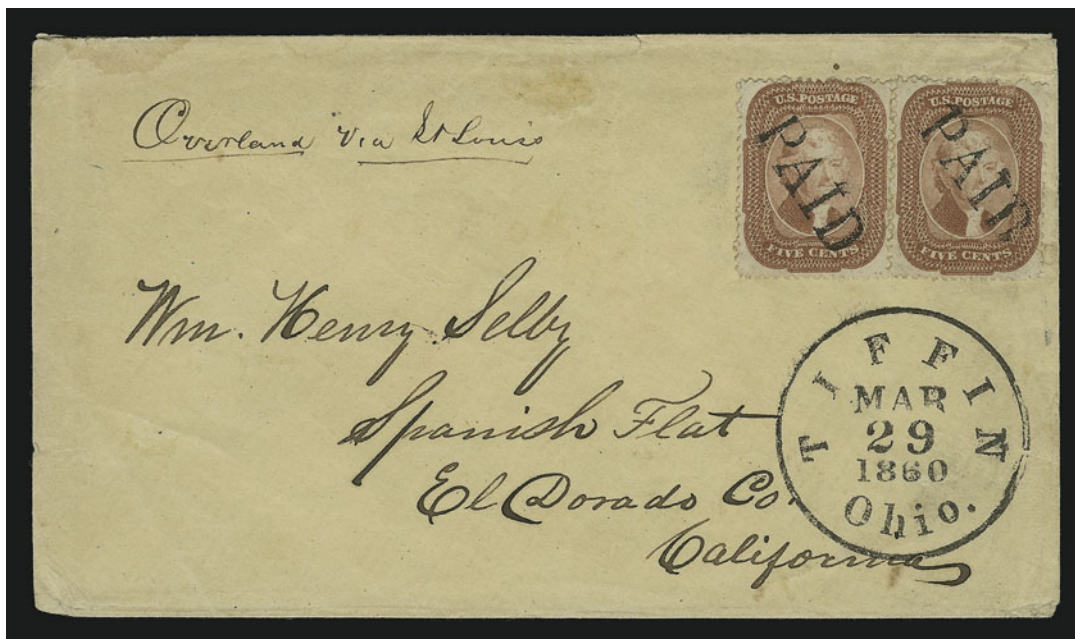 Overland Via St Louis
U.S. POSTAGE
PAID
FIVE CENTS
U.S. POSTAGE
PAID
FIVE CENTS
Wm. Henry Selby
Spanish Flat
El Dorado Co.
California
TIFFIN
MAR
29
1860
Ohio.